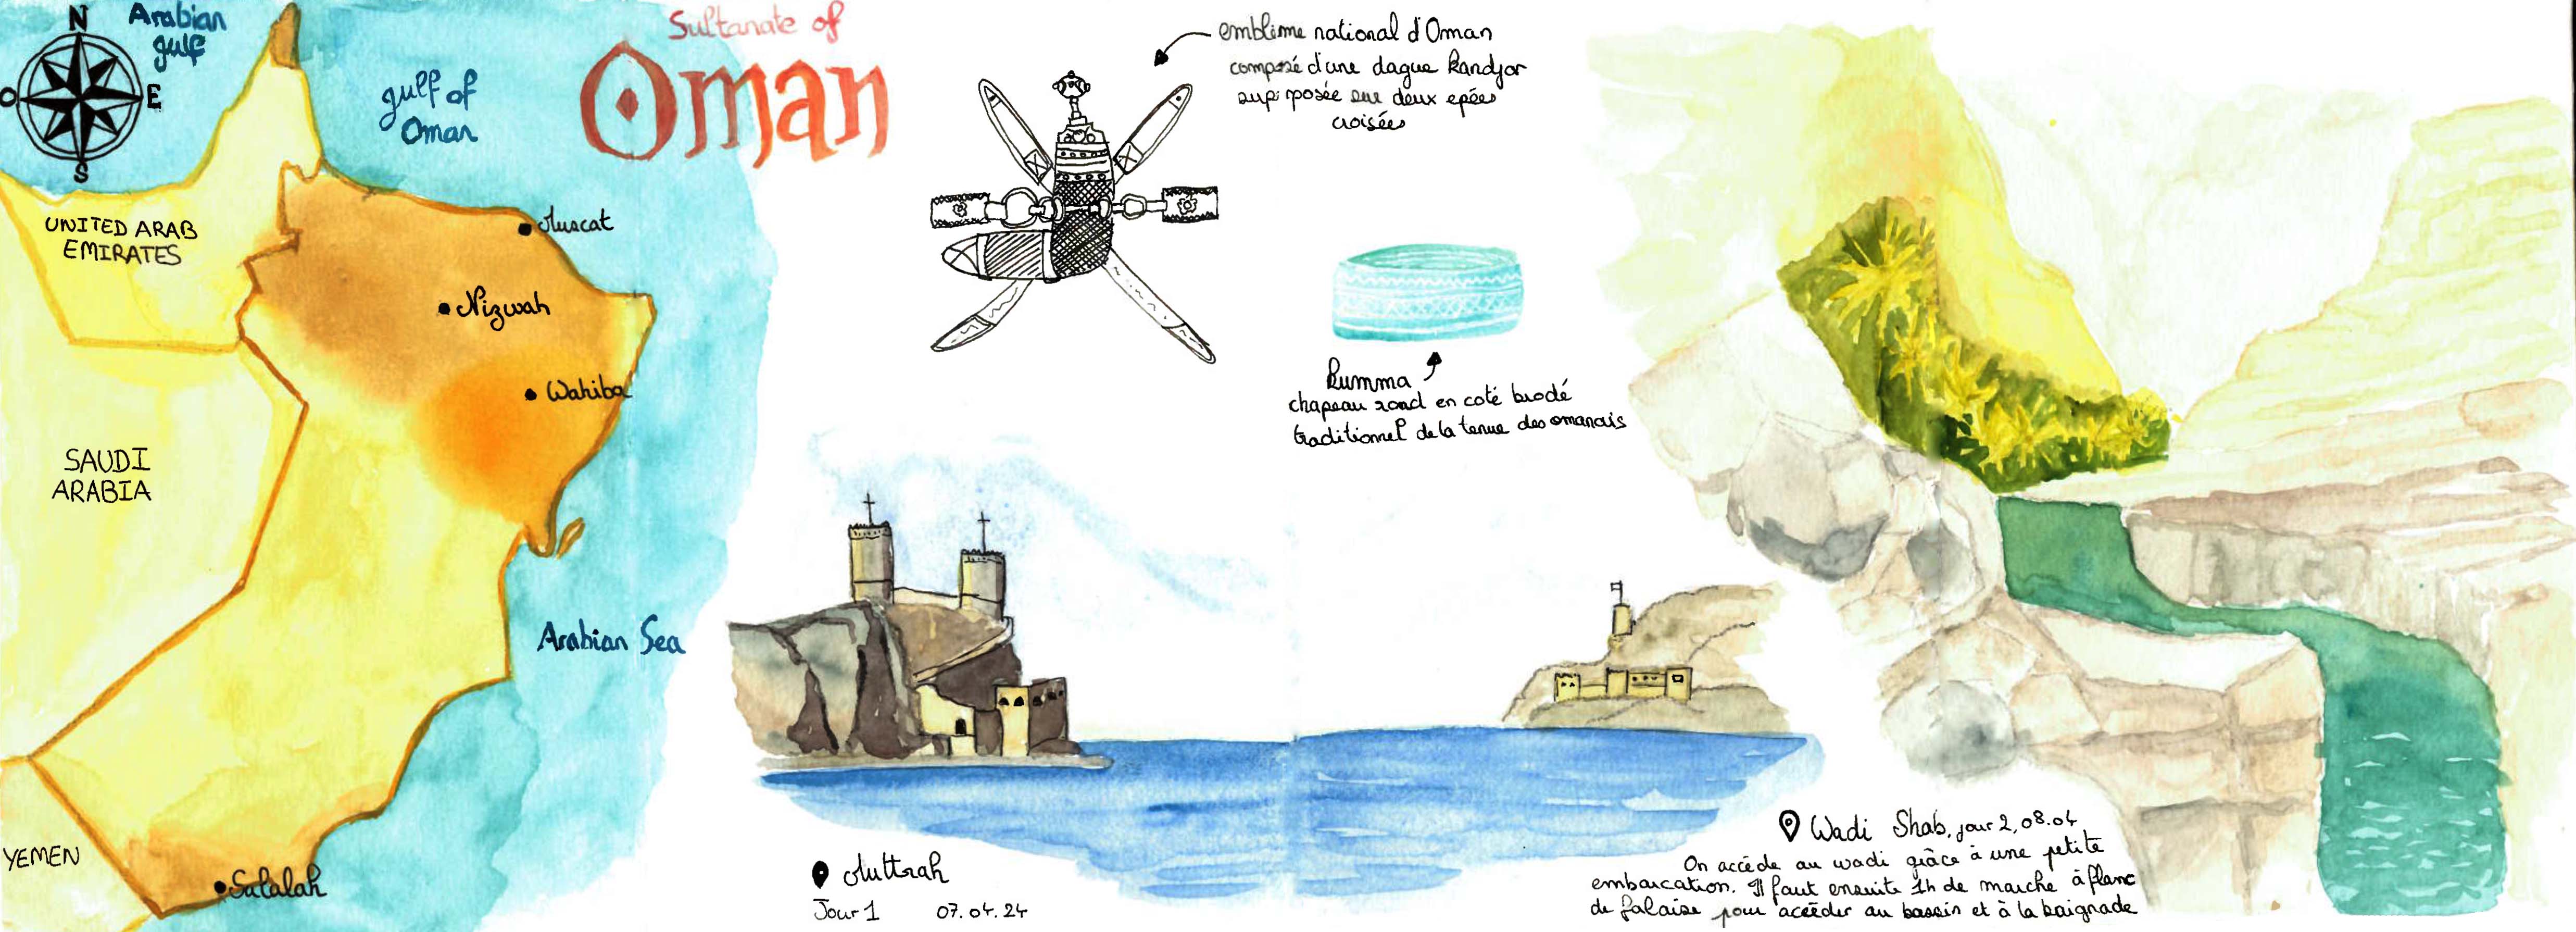 N
O
E
S
Arabian
gulf
gulf of
Oman
Sultanate of
Oman
UNITED ARAB
EMIRATES
Muscat
Nizwah
Wahiba
SAUDI
ARABIA
Arabian Sea
YEMEN
Salalah
emblème national d'Oman
composé d'une dague kandjar
superposée sur deux epées
croisées
kumma
chapeau rond en coté brodé
traditionnel de la tenue des omanais
Muttrah
Jour 1 07.04.24
Wadi Shab, jour 2, 08.04
On accéde au wadi grâce à une petite
embarcation. Il faut ensuite 1h de marche à flanc
de falaise pour accéder au bassin et à la baignade